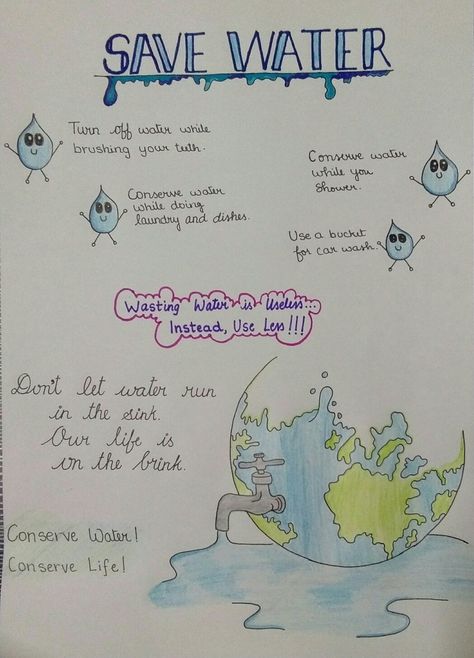 SAVE WATER
Turn off water while
brushing your teeth.
Conserve water
while you
shower.
Conserve water
while doing
laundry and dishes.
Use a bucket
for car wash.
Wasting Water is Useless...
Instead, Use Less!!!
Don't let water run
in the sink.
Our life is
on the brink.
Conserve Water!
Conserve Life!